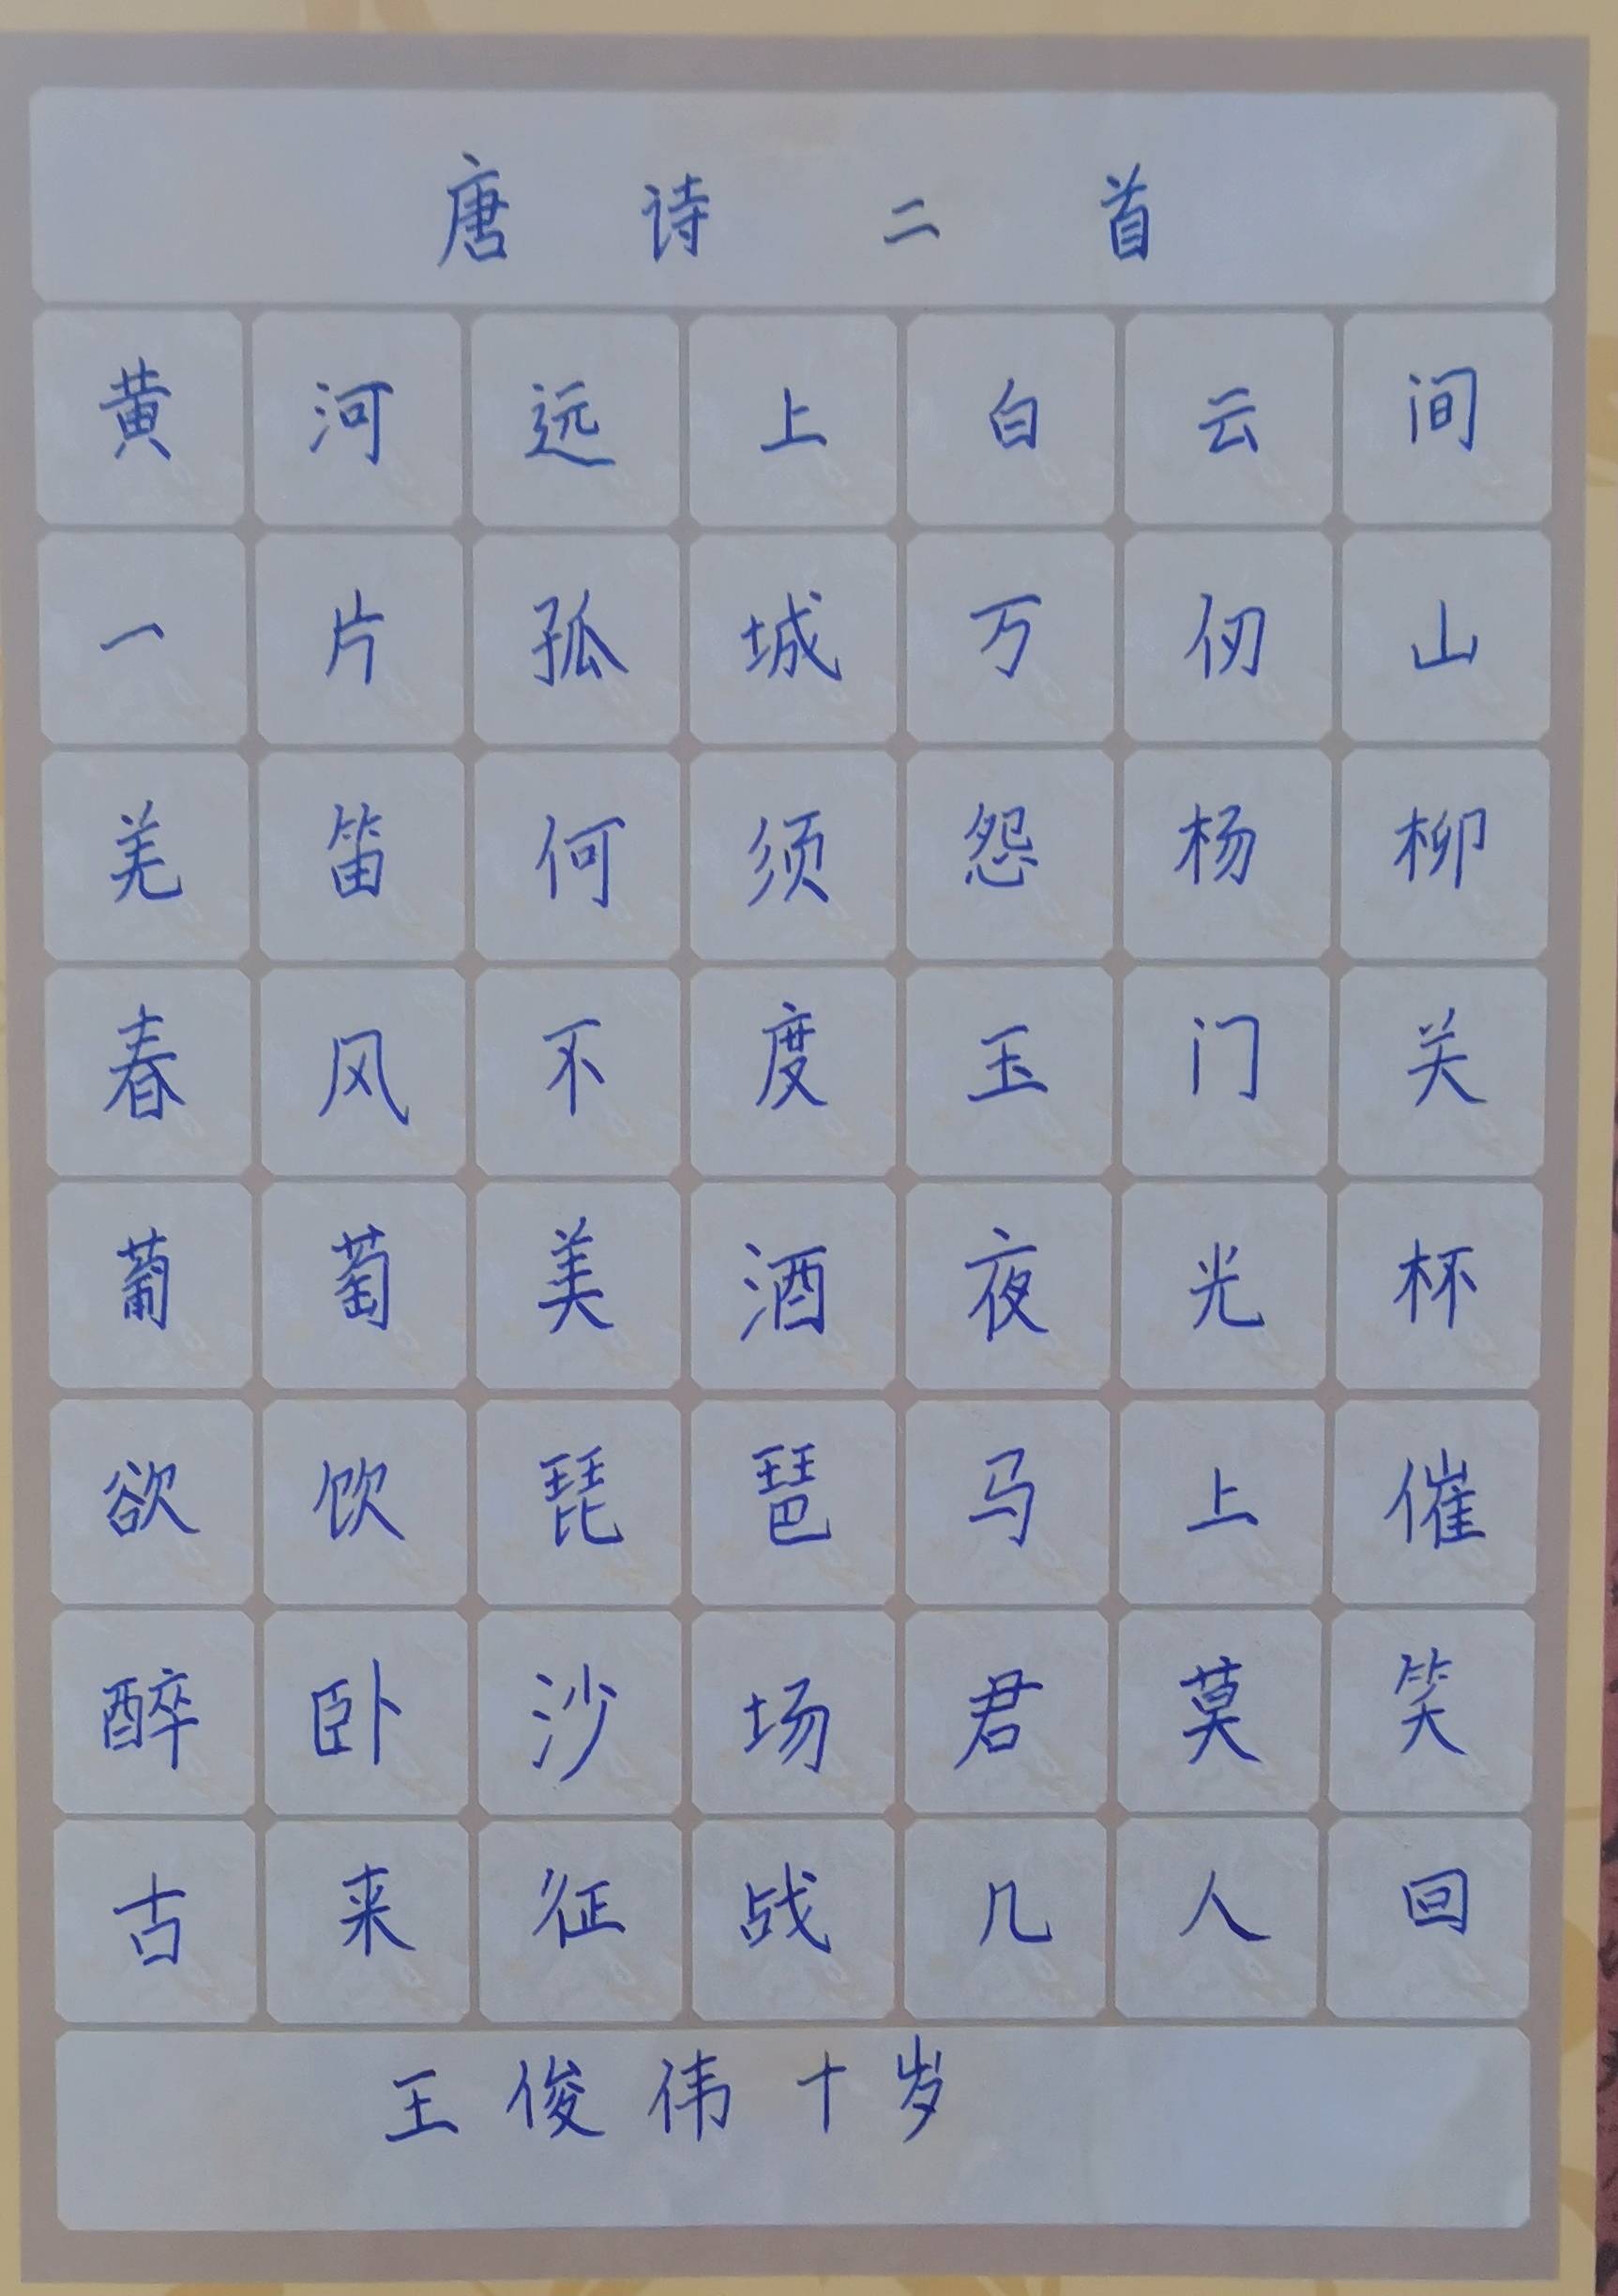 唐诗二首
黄河远上白云间
一片孤城万仞山
羌笛何须怨杨柳
春风不度玉门关
葡萄美酒夜光杯
欲饮琵琶马上催
醉卧沙场君莫笑
古来征战几人回
王俊伟十岁